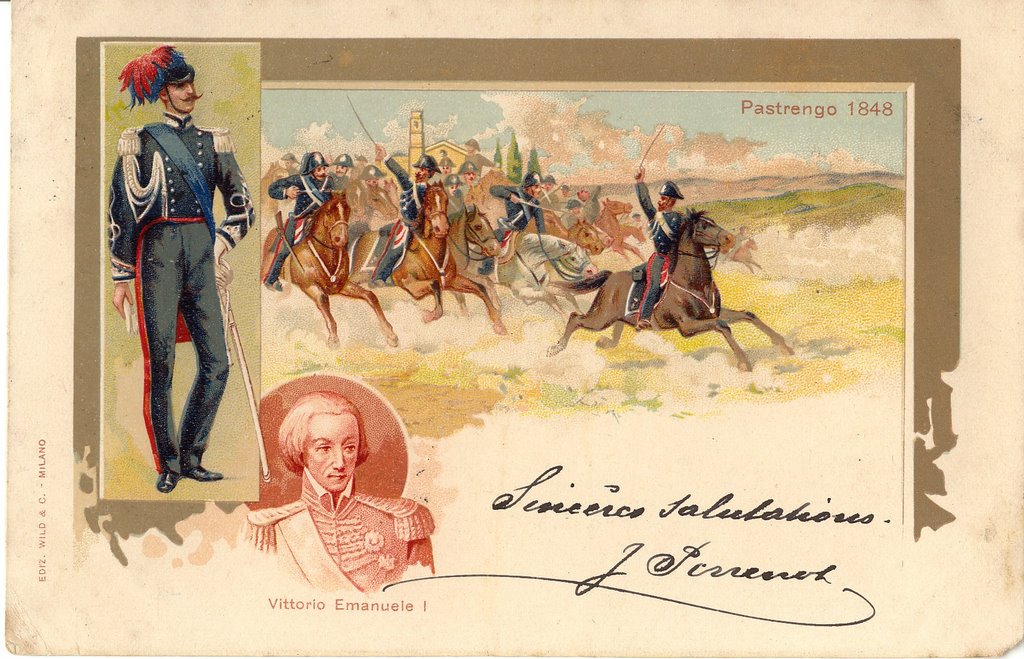 Pastrengo 1848
EDIZ. WILD & C. - MILANO
Vittorio Emanuele I
Sincères salutations.
J